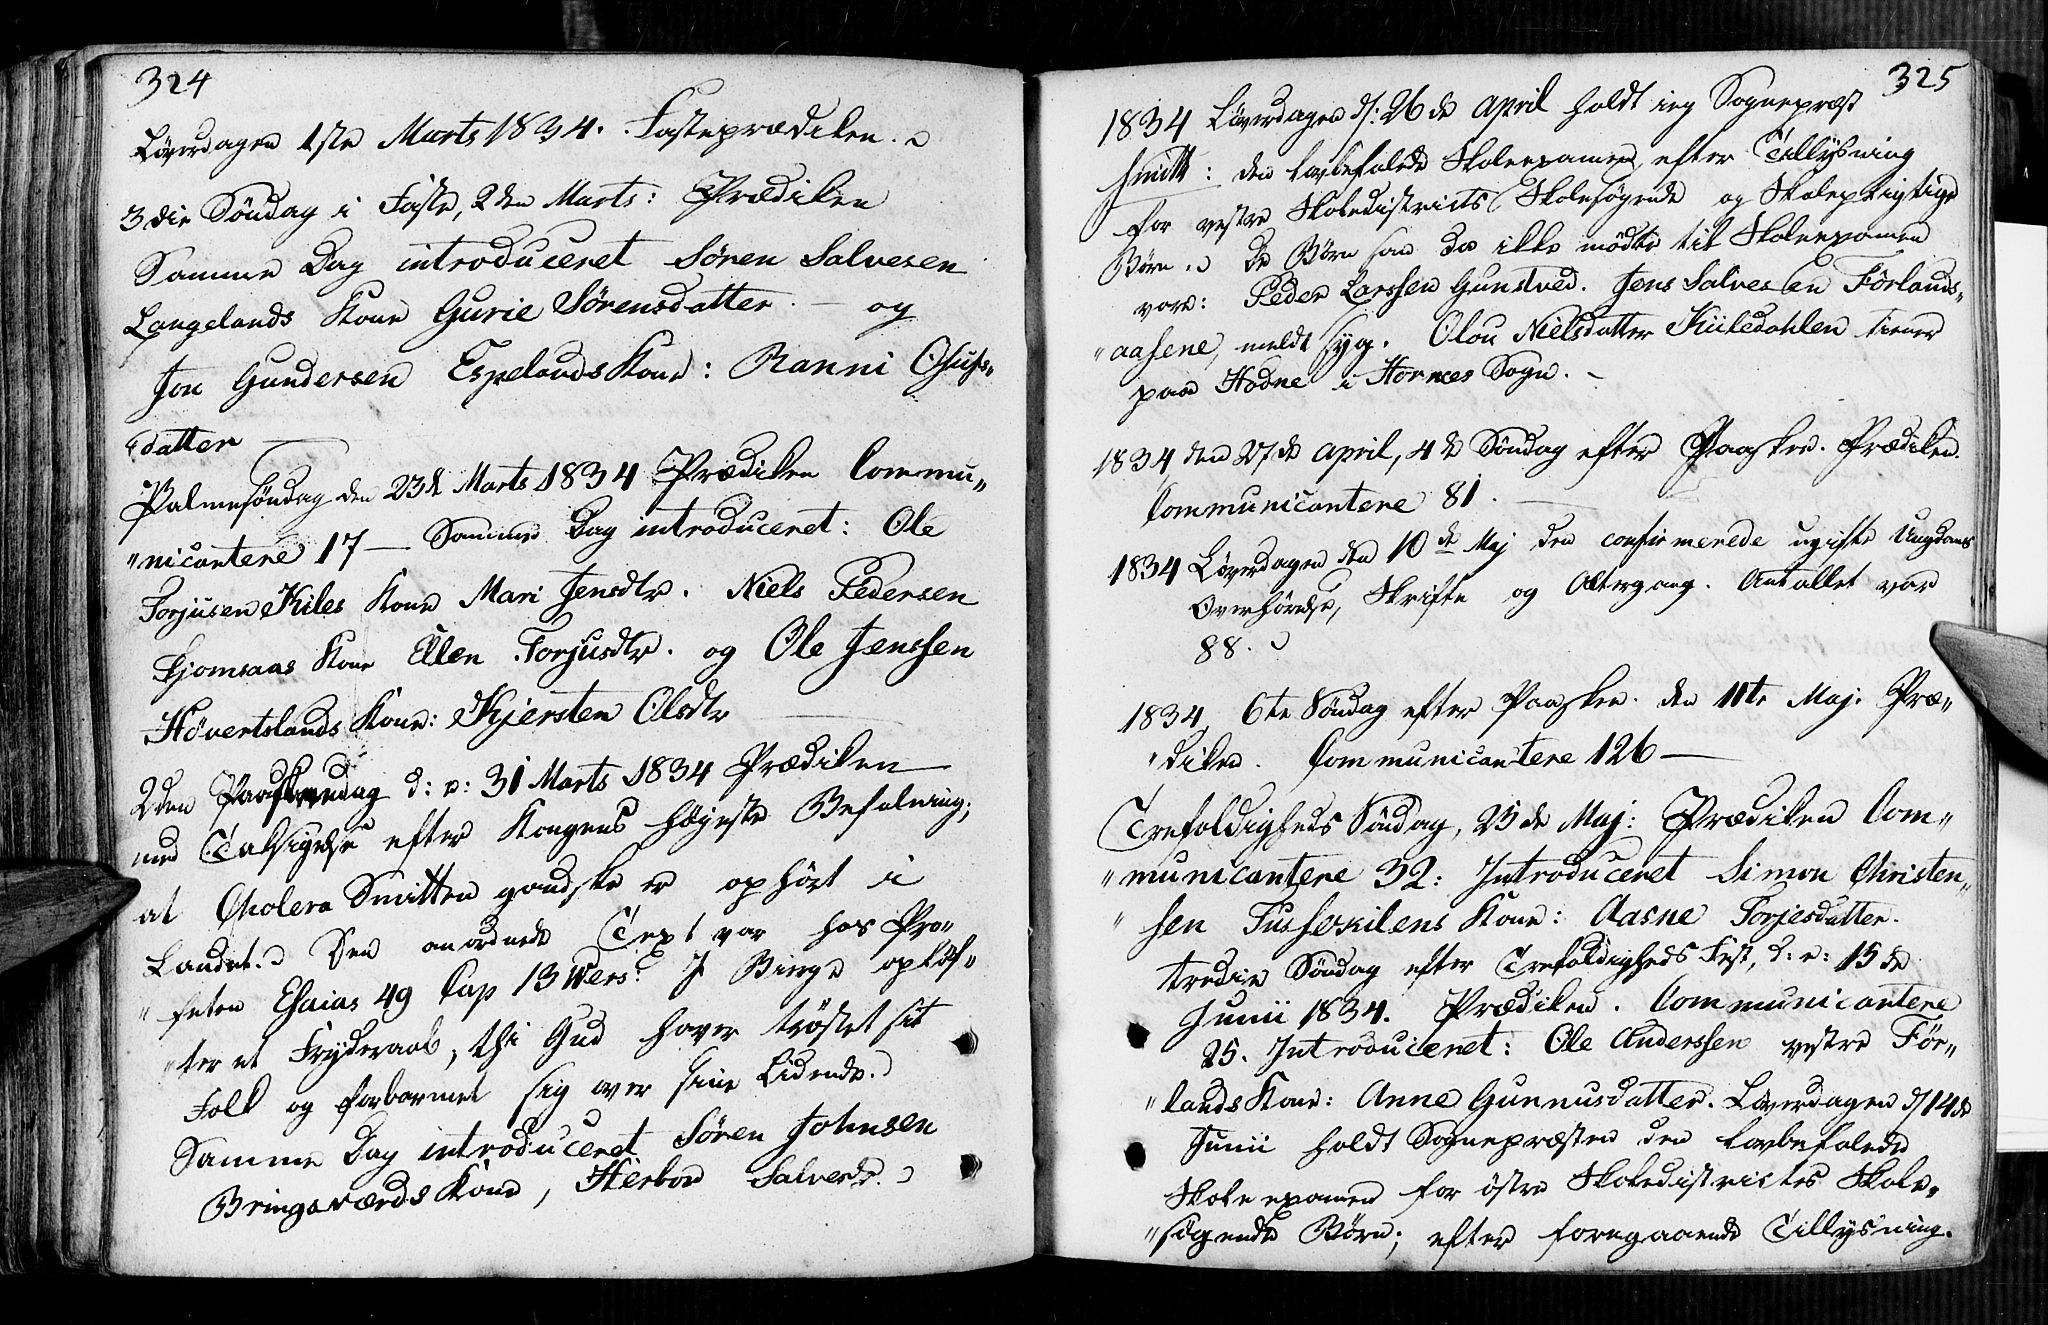 324
Löverdagen 1ste Marts 1834. Fasteprædiken.
3die Söndag i Faste, 2den Marts: Prædiken
Samme Dag introduceret Sören Salvesen
Langelands Kone Gurie Sörensdatter. — og
Jon Gundersen Espelands Kone: Ranni Osufs„
„datter —
Palmesöndag den 23de Marts 1834 Prædiken Commu„
„nicantere 17 — Samme Dag introduceret: Ole
Torjusen Kiles Kone Mari Jensdtr. Niels Pedersen
Skjomsaas Kone Ellen Torjusdtr. og Ole Jenssen
Hövertslands Kone: Kjersten Olsdtr —
2den Paaskedag d: e: 31 Marts 1834 Prædiken
med Taksigelse efter Kongens höjeste Befalning;
at Cholera Smitten gandske er ophört i
Landet. Den anordnede Text var hos Pro„
„feten Esaias 49 Cap 13 Vers: I Bierge oplöf„
„ter et Frydéraab, thi Gud haver tröstet sit
Folk og forbarmet sig over sine Lidende.
Samme Dag introduceret Sören Johnsen
Bringsværds Kone, Herbor Salvesdr.
325
1834 Löverdagen d: 26de April holdt ieg Sognepræst
Smitt: den lovbefalede Skoleexamen, efter Tillysning
for vestre Skoledistricts Skolesögende og Skolepligtige
Börn. De Börn som da ikke mödte til Skoleexamen
vare: Peder Larssen Gunstved. Jens Salvesen Förlands„
„aasene, meldt syg. Olou Nielsdatter Kiiledahlen tiener
paa Hodne i Hornnes Sogn. —
1834, den 27de April, 4de Söndag efter Paaske. Prædiken.
Communicantere 81. —
1834 Löverdagen den 10de Maj den confirmerede ugifte Ungdoms
Overhörelse, Skrifte og Altergang. Antallet var
88.
1834, 6te Söndag efter Paaske. den 11te Maj. Præ„
„diken. Communicantere 126 —
Trefoldigheds Söndag, 25de Maj: Prædiken Com„
„municantere 32: Introduceret Simon Christen„
„sen Fusseskilens Kone: Aasne Torjesdatter.
tredie Söndag efter Trefoldigheds Fest, d: e: 15de
Junii 1834. Prædiken. Communicantere
25. Introduceret: Ole Anderssen vestre För„
„lands Kone: Anne Gunnusdatter. Löverdagen d/14de
Junii holdt Sognepræsten den lovbefalede
Skoleexamen for östre Skoledistrictes Skole„
„sögende Börn; efter foregaaende Tillysning.